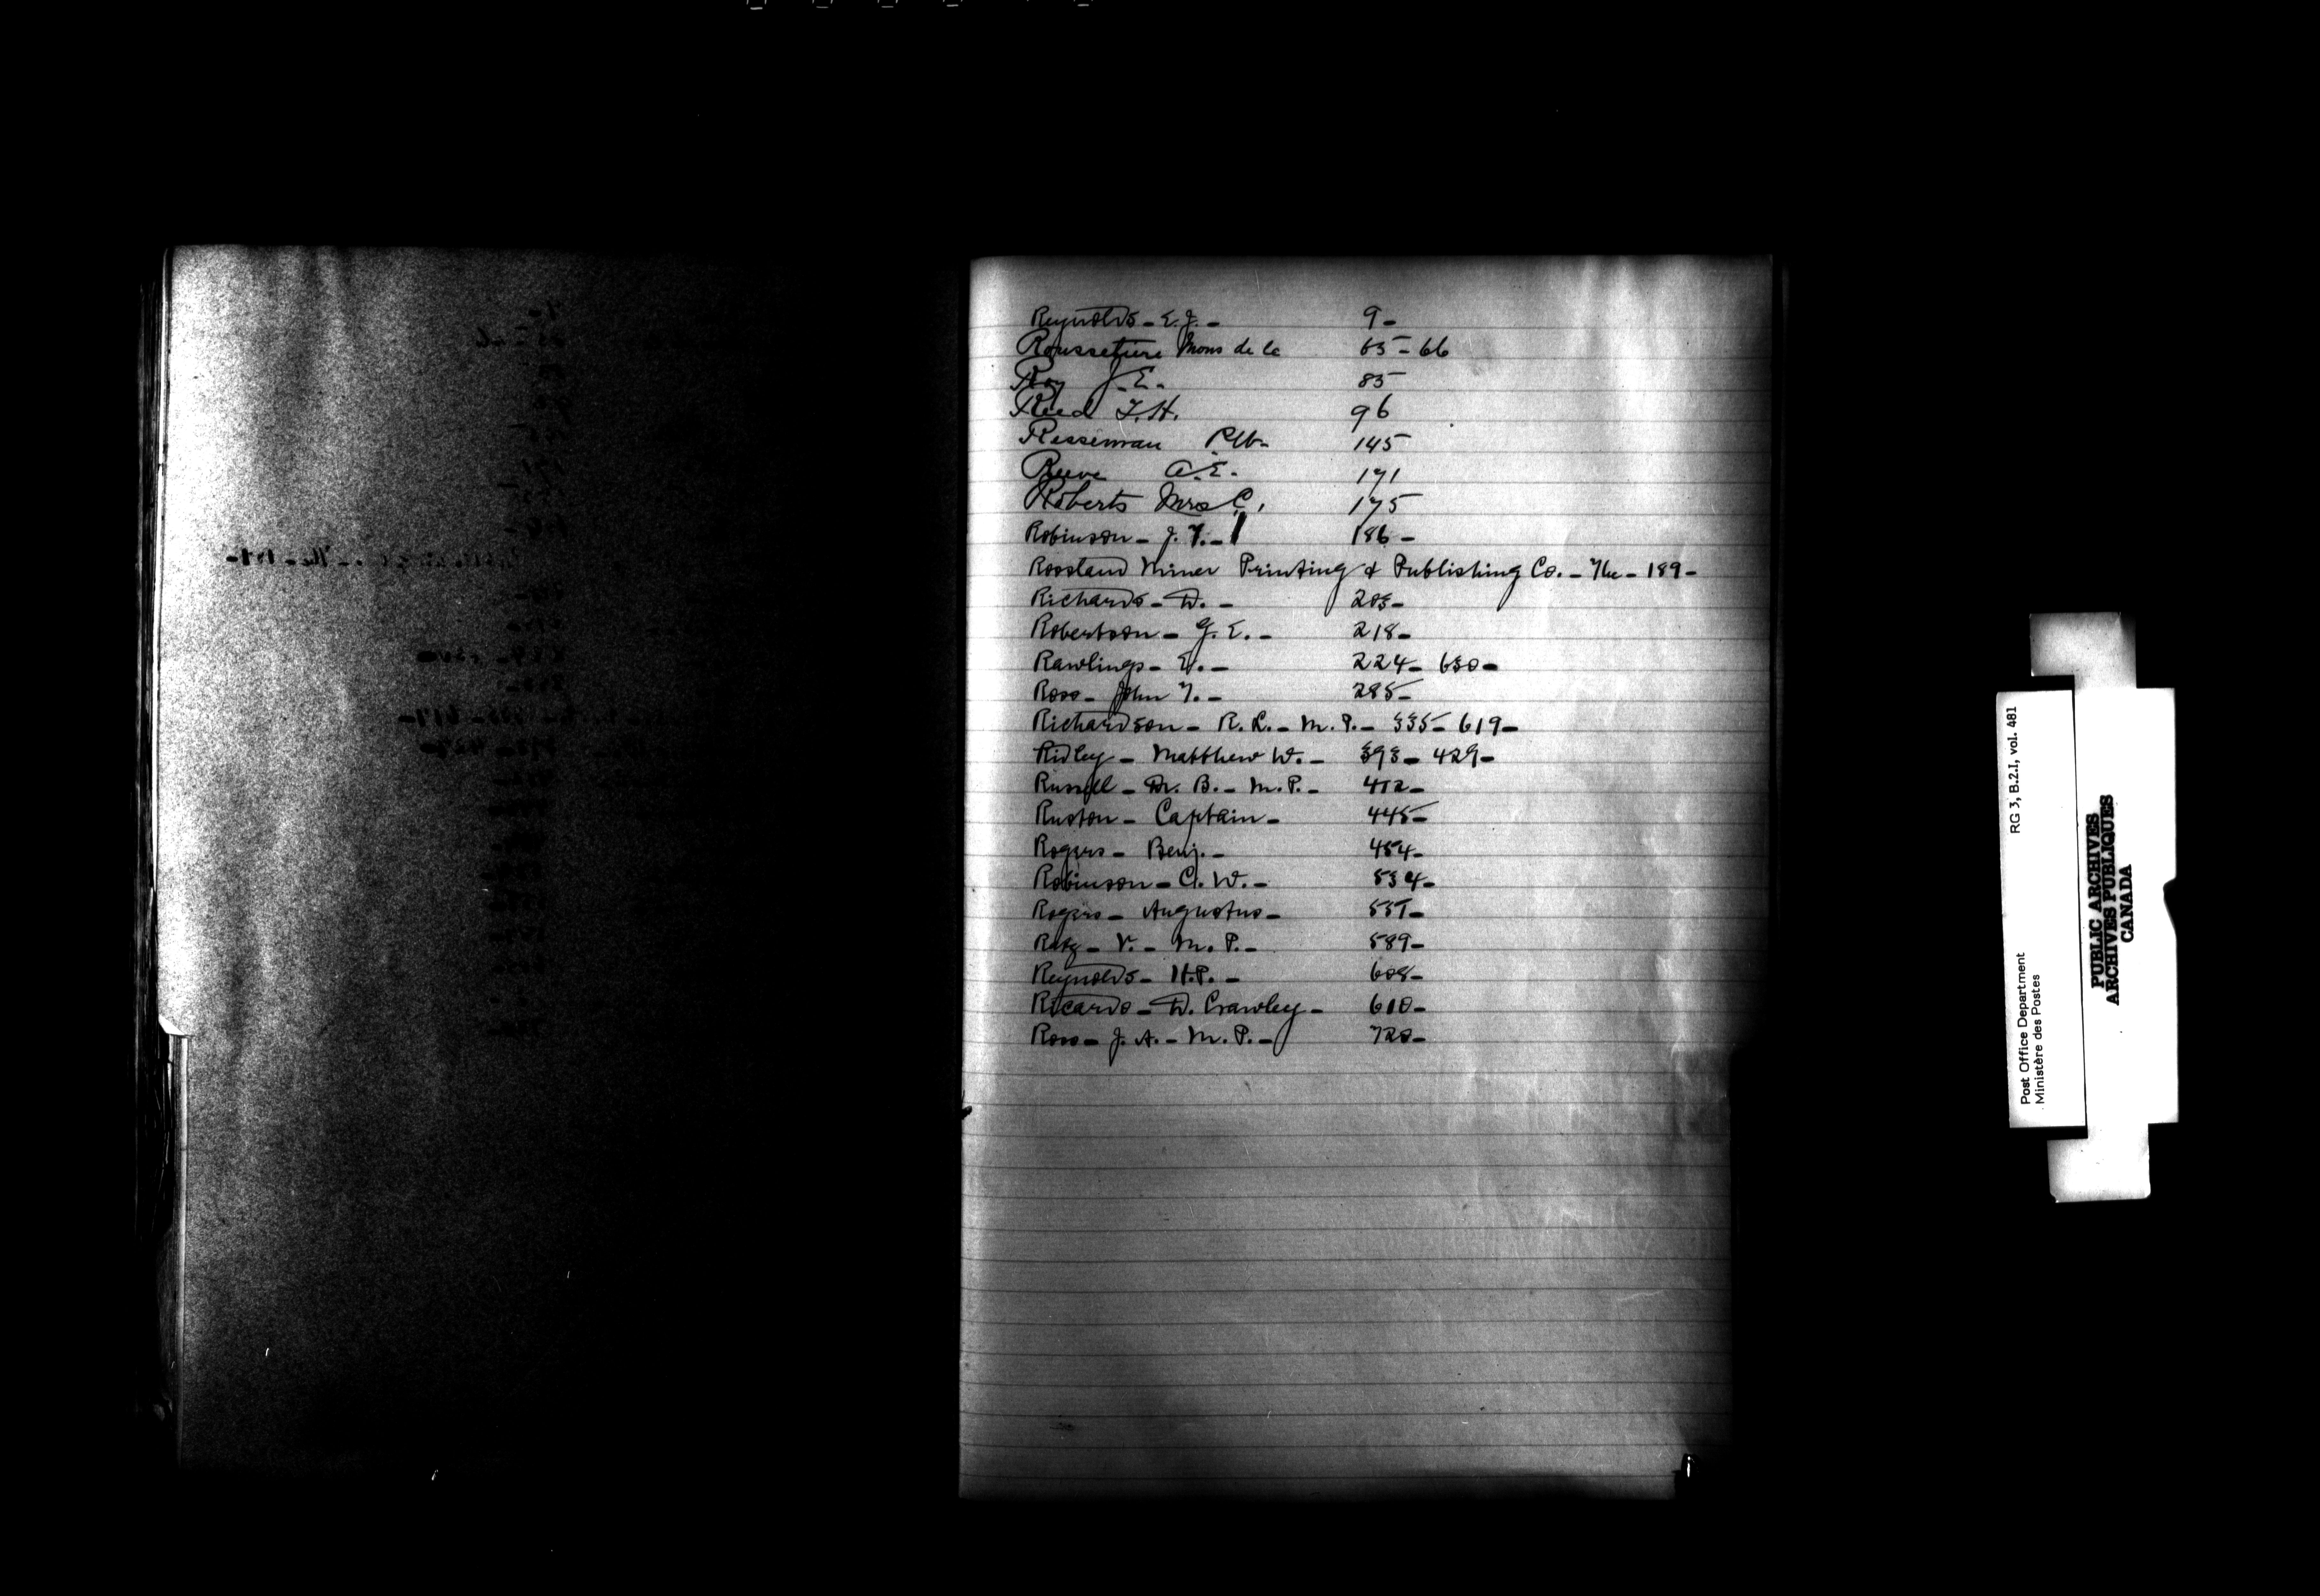 Reynolds - E. J. - 9 -
Mons de la 65 - 66
Roy J. E. - 85
Reed T. H. 96
Resseman 145
Reeve A. E. - 171
Roberts Mrs C. 175
Robinson - J. T. - 186 -
Rossland Miner Printing & Publishing Co. - The - 189 -
Richards - D. - 203 -
Robertson - G. E. - 218 -
Rawlings - E. - 224 - 630 -
Ross - John T. - 285 -
Richardson - R. L. - M. P. - 335 - 619 -
Ridley - Matthew W. - 393 - 429 -
Russell - Dr. B. - M. P. - 412 -
Ruston - Captain - 445 -
Rogers - Benj. - 454 -
Robinson - C. W. - 534 -
Rogers - Augustus - 557 -
Ratz - V. - M. P. - 589 -
Reynolds - H. P. - 608 -
Ricardo - D. Crawley - 610 -
Ross - J. A. - M. P. - 720 -
Post Office Department RG 3, B.2.I, vol. 481
Ministère des Postes
PUBLIC ARCHIVES
ARCHIVES PUBLIQUES
CANADA